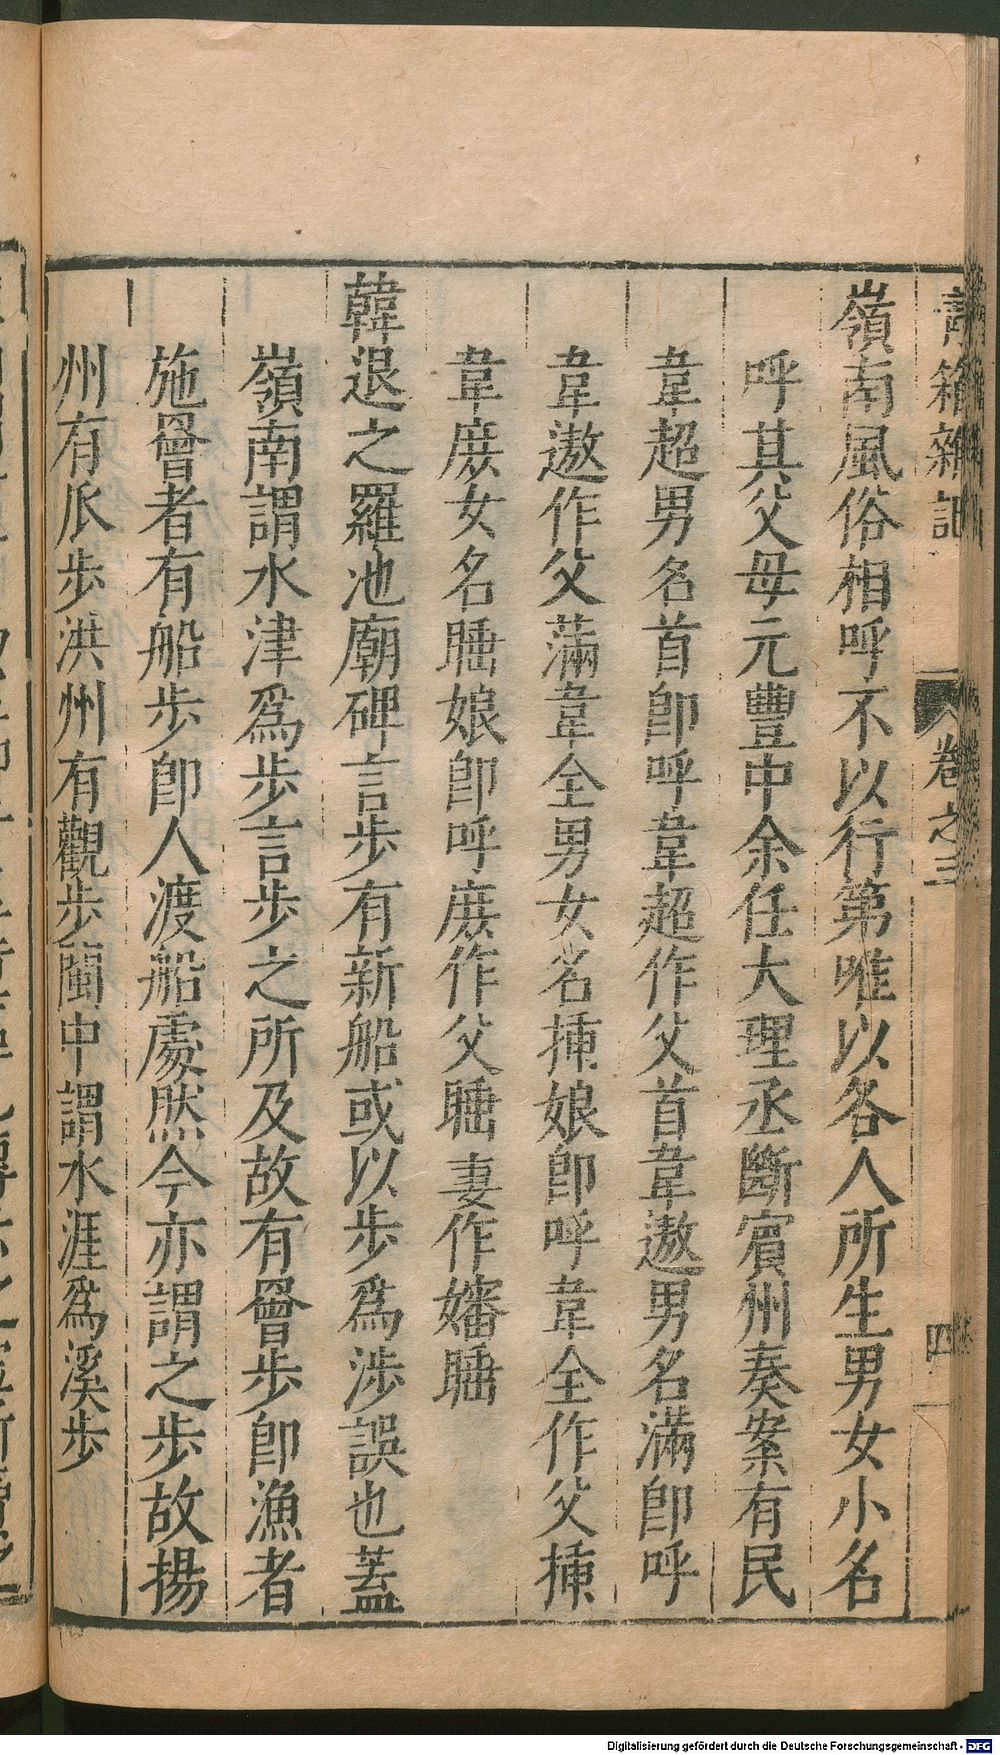 青箱雜記 卷之三 四
嶺南風俗相呼不以行第唯以各人所生男女小名
呼其父母元豐中余任大理丞斷賓州奏案有民
韋超男名首卽呼韋超作父首韋遨男名滿卽呼
韋遨作父滿韋全男女名插娘卽呼韋全作父插
韋庶女名睡娘卽呼庶作父睡妻作嬸睡
韓退之羅池廟碑言步有新船或以步爲涉誤也蓋
嶺南謂水津爲步言步之所及故有罾步卽漁者
施罾者有船步卽人渡船處然今亦謂之步故揚
州有𤓰步洪州有觀步閩中謂水涯爲溪步
Digitalisierung gefördert durch die Deutsche Forschungsgemeinschaft - DFG